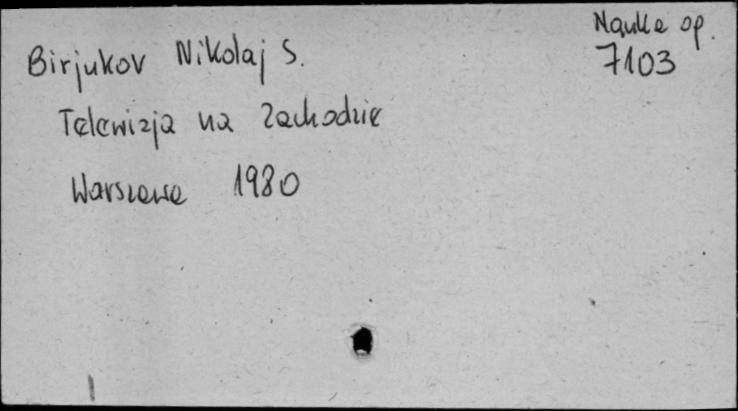 Nauka op.
7103
Birjukov Nikolaj S.
Telewizja na Zachodzie
Warszawa 1980